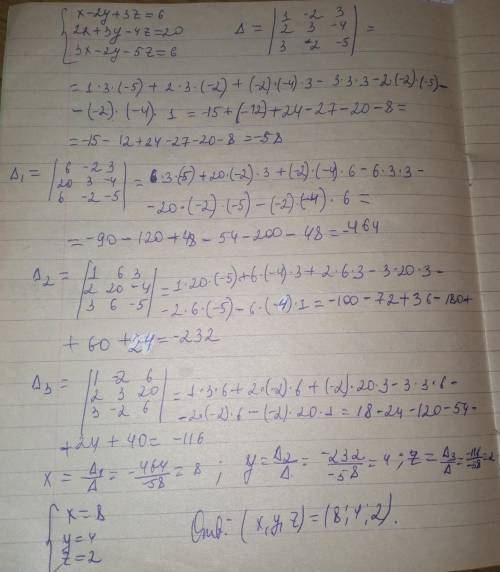 { x-2y+3z=6
2x+3y-4z=20
3x-2y-5z=6
Δ = | 1 -2 3
2 3 -4
3 -2 -5 | =
= 1·3·(-5) + 2·3·(-2) + (-2)·(-4)·3 - 3·3·3 - 2·(-2)·(-5) -
- (-2)·(-4)·1 = -15 + (-12) + 24 - 27 - 20 - 8 =
= -15 - 12 + 24 - 27 - 20 - 8 = -58
Δ₁ = | 6 -2 3
20 3 -4
6 -2 -5 | = 6·3·(-5) + 20·(-2)·3 + (-2)·(-4)·6 - 6·3·3 -
- 20·(-2)·(-5) - (-2)·(-4)·6 =
= -90 - 120 + 48 - 54 - 200 - 48 = -464
Δ₂ = | 1 6 3
2 20 -4
3 6 -5 | = 1·20·(-5) + 6·(-4)·3 + 2·6·3 - 3·20·3 -
- 2·6·(-5) - 6·(-4)·1 = -100 - 72 + 36 - 180 +
+ 60 + 24 = -232
Δ₃ = | 1 -2 6
2 3 20
3 -2 6 | = 1·3·6 + 2·(-2)·6 + (-2)·20·3 - 3·3·6 -
- 2·(-2)·6 - (-2)·20·1 = 18 - 24 - 120 - 54 -
+ 24 + 40 = -116
x = Δ₁/Δ = -464/-58 = 8 ; y = Δ₂/Δ = -232/-58 = 4 ; z = Δ₃/Δ = -116/-58 = 2
{ x = 8
y = 4
z = 2
Отв: (x, y, z) = (8; 4; 2).